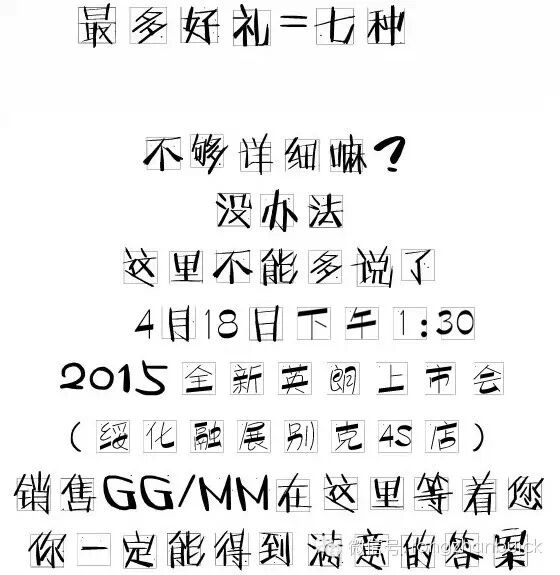 最多好礼=七种
不够详细嘛?
没办法
这里不能多说了
4月18日下午1:30
2015全新英朗上市会
(绥化融展别克4S店)
销售GG/MM在这里等着您
你一定能得到满意的答案
微信号: